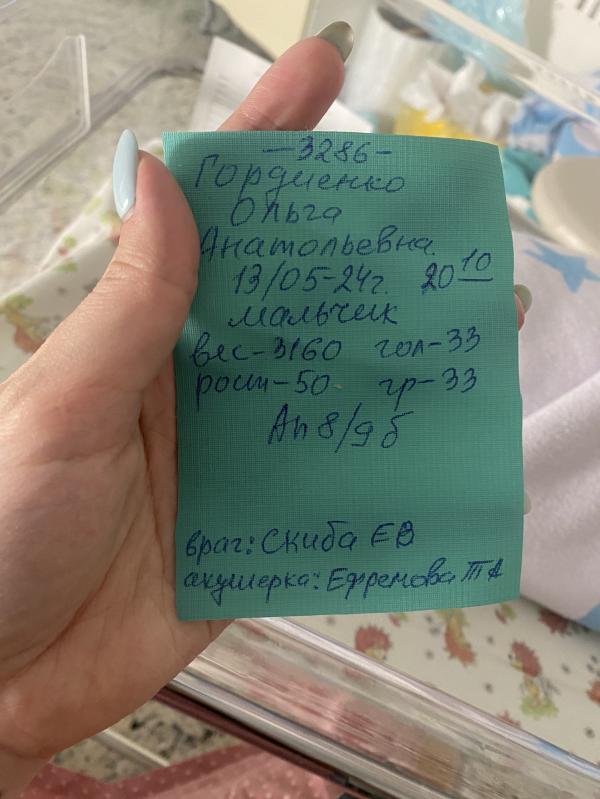 -3286-
Гордиенко
Ольга
Анатольевна.
13/05-24г. 20 10
мальчик
вес-3160 гол-33
рост-50 гр-33
Ап 8/9 б
врач: Скиба ЕВ
акушерка: Ефремова ТА